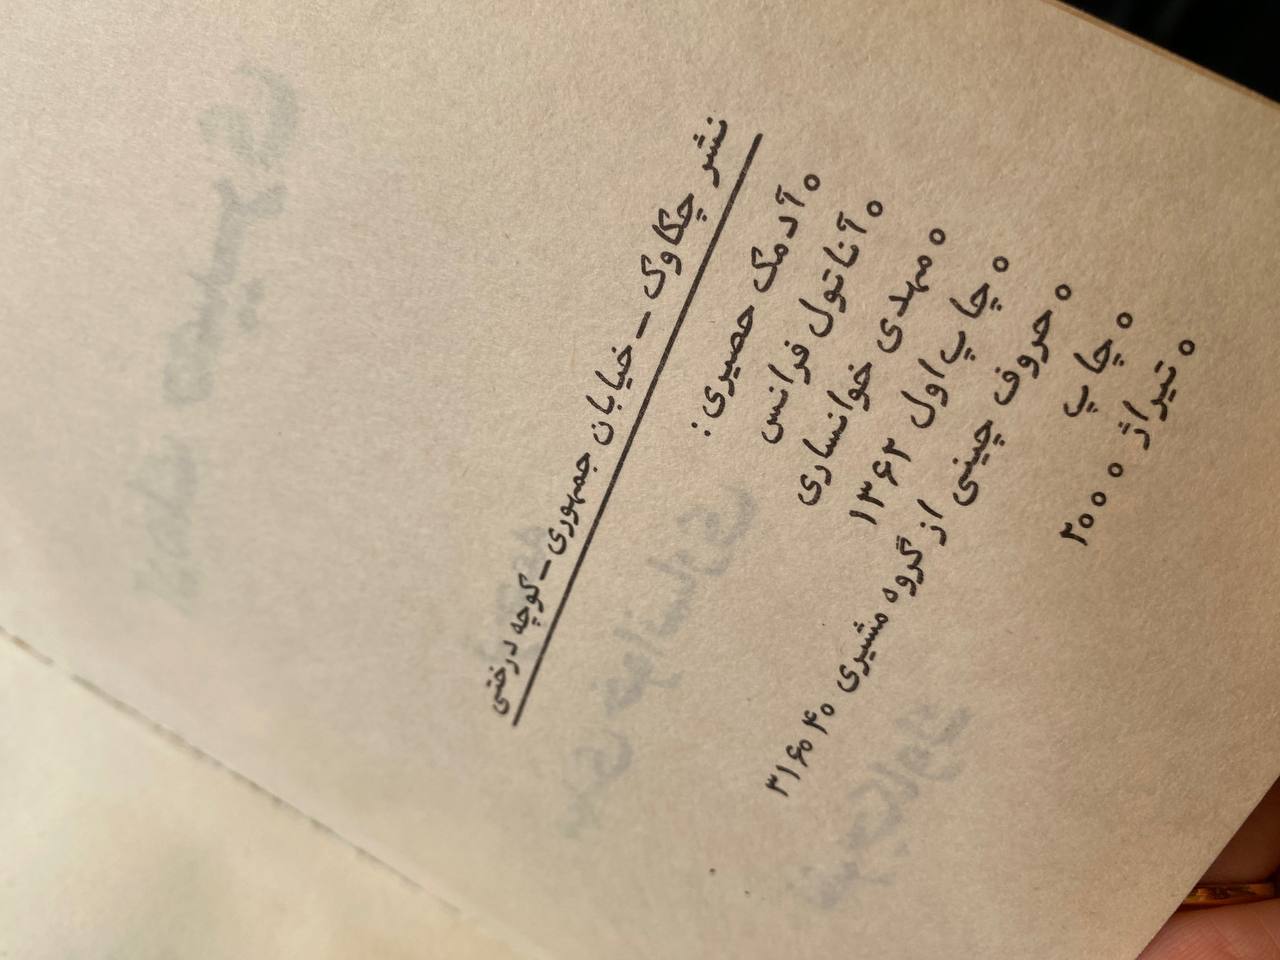 نشر چکاوک – خیابان جمهوری – کوچه درختی
o آدمک حصیری:
o آناتول فرانس
o مهدی خوانساری
o چاپ اول ۱۳۶۲
o حروف چینی از گروه مشیری ۳۱۶۰۴۰
o چاپ
o تیراژ ۲۰۰۰